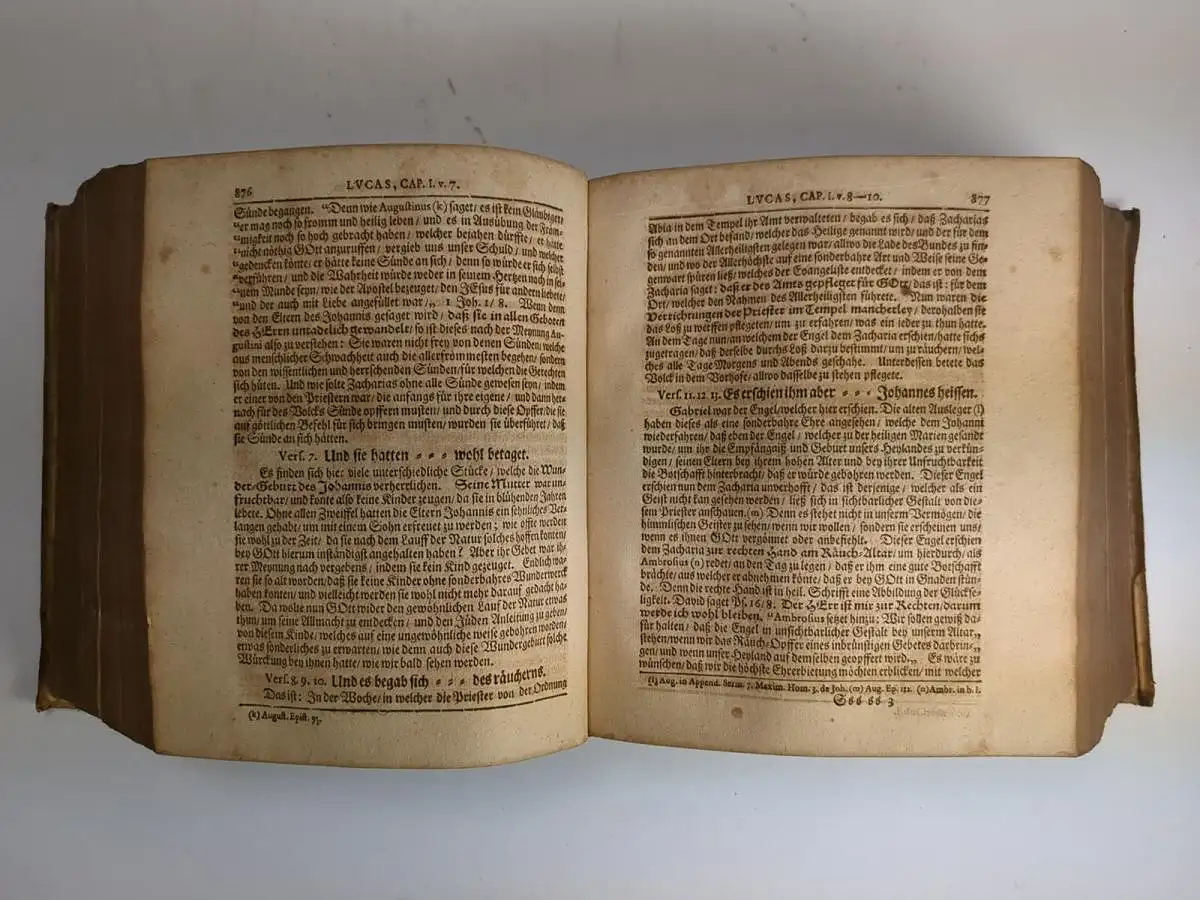 876
LVCAS, CAP. I. v. 7.
Sünde begangen. "Denn wie Augustinus (k) saget/ es ist kein Gläubiger/
"er mag noch so fromm und heilig leben/ und es in Ausübung der From-
"migkeit noch so hoch gebracht haben/ welcher bejahen dürffte/ er hätte
"nicht nöthig GOtt anzuruffen/ vergieb uns unser Schuld/ und welcher
"gedencken könte/ er hätte keine Sünde an sich/ denn so würde er sich selbst
"verführen/ und die Wahrheit würde weder in seinem Hertzen noch in sei-
"nem Munde seyn/ wie der Apostel bezeuget/ den JEsus für andern liebete/
"und der auch mit Liebe angefüllet war/„ 1 Joh. 1/ 8. Wenn denn
von den Eltern des Johannis gesaget wird/ daß sie in allen Geboten
des HErrn untadelich gewandelt/ so ist dieses nach der Meynung Au-
gustini also zu verstehen: Sie waren nicht frey von denen Sünden/ welche
aus menschlicher Schwachheit auch die allerfrömmesten begehen/ sondern
von den wissentlichen und herrschenden Sünden/ für welchen die Gerechten
sich hüten. Und wie solte Zacharias ohne alle Sünde gewesen seyn/ indem
er einer von den Priestern war/ die anfangs für ihre eigene/ und dann her-
nach für des Volcks Sünde opffern musten/ und durch diese Opffer/ die sie
auf göttlichen Befehl für sich bringen musten/ wurden sie überführet/ daß
sie Sünde an sich hätten.
Vers. 7. Und sie hatten = = = wohl betaget.
Es finden sich hier viele unterschiedliche Stücke/ welche die Wun-
der-Geburt des Johannis verherrlichen. Seine Mutter war un-
fruchtbar/ und konte also keine Kinder zeugen/ da sie in blühenden Jahren
lebete. Ohne allen Zweiffel hatten die Eltern Johannis ein sehnliches Ver-
langen gehabt/ um mit einem Sohn erfreuet zu werden; wie offte werden
sie wohl zu der Zeit/ da sie nach dem Lauff der Natur solches hoffen konten/
bey GOtt hierum inständigst angehalten haben? Aber ihr Gebet war ih-
rer Meynung nach vergebens/ indem sie kein Kind gezeuget. Endlich wa-
ren sie so alt worden/ daß sie keine Kinder ohne sonderbahres Wunderwerck
haben konten/ und vielleicht werden sie wohl nicht mehr darauf gedacht ha-
ben. Da wolte nun GOtt wider den gewöhnlichen Lauf der Natur etwas
thun/ um seine Allmacht zu entdecken/ und den Jüden Anleitung zu geben/
von diesem Kinde/ welches auf eine ungewöhnliche weise gebohren worden/
etwas sonderliches zu erwarten/ wie denn auch diese Wundergeburt solche
Würckung bey ihnen hatte/ wie wir bald sehen werden.
Vers. 8. 9. 10. Und es begab sich = = = des räucherns.
Das ist: In der Woche/ in welcher die Priester von der Ordnung
(k) August. Epist. 95.
LVCAS, CAP. I. v. 8—10.
877
Abia in dem Tempel ihr Amt verwalteten/ begab es sich/ daß Zacharias
sich an dem Ort befand/ welcher das Heilige genannt wird/ und der für dem
so genannten Allerheiligsten gelegen war/ allwo die Lade des Bundes zu fin-
den/ und wo der Allerhöchste auf eine sonderbahre Art und Weise seine Ge-
genwart spüren ließ/ welches der Evangeliste entdecket/ indem er von dem
Zacharia saget: daß er des Amts gepfleget für GOtt/ das ist: für dem
Ort/ welcher den Nahmen des Allerheiligsten führete. Nun waren die
Verrichtungen der Priester im Tempel mancherley/ derohalben sie
das Loß zu werffen pflegeten/ um zu erfahren/ was ein jeder zu thun hatte.
An dem Tage nun/ an welchem der Engel dem Zacharia erschien/ hatte sichs
zugetragen/ daß derselbe durchs Loß darzu bestimmt/ um zu räuchern/ wel-
ches alle Tage Morgens und Abends geschahe. Unterdessen betete das
Volck in dem Vorhofe/ allwo dasselbe zu stehen pflegete.
Vers. 11. 12. 13. Es erschien ihm aber = = = Johannes heissen.
Gabriel war der Engel/ welcher hier erschien. Die alten Ausleger (l)
haben dieses als eine sonderbahre Ehre angesehen/ welche dem Johanni
wiederfahren/ daß eben der Engel/ welcher zu der heiligen Marien gesandt
wurde/ um ihr die Empfängniß und Geburt unsers Heylandes zu verkün-
digen/ seinen Eltern bey ihrem hohen Alter und bey ihrer Unfruchtbarkeit
die Botschafft hinterbracht/ daß er würde gebohren werden. Dieser Engel
erschien nun dem Zacharia unverhofft/ das ist derjenige/ welcher als ein
Geist nicht kan gesehen werden/ ließ sich in sichtbarlicher Gestalt von die-
sem Priester anschauen. (m) Denn es stehet nicht in unserm Vermögen/ die
himmlischen Geister zu sehen/ wenn wir wollen/ sondern sie erscheinen uns/
wenn es ihnen GOtt vergönnet oder anbefiehlt. Dieser Engel erschien
dem Zacharia zur rechten Hand am Räuch-Altar/ um hierdurch/ als
Ambrosius (n) redet/ an den Tag zu legen/ daß er ihm eine gute Botschafft
brächte/ aus welcher er abnehmen könte/ daß er bey GOtt in Gnaden stün-
de. Denn die rechte Hand ist in heil. Schrifft eine Abbildung der Glückse-
ligkeit. David saget Ps. 16/ 8. Der HErr ist mir zur Rechten/ darum
werde ich wohl bleiben. "Ambrosius setzet hinzu: Wir sollen gewiß da-
für halten/ daß die Engel in unsichtbarlicher Gestalt bey unserm Altar„
stehen/ wenn wir das Räuch-Opffer eines inbrünstigen Gebetes darbrin-„
gen/ und wenn unser Heyland auf demselben geopffert wird.„ Es wäre zu
wünschen/ daß wir die höchste Ehrerbietung möchten erblicken/ mit welcher
(l) Aug. in Append. Serm. 7. Maxim. Hom. 3. de Joh. (m) Aug. Ep. 112. (n) Ambr. in h. l.
Sss ss 3